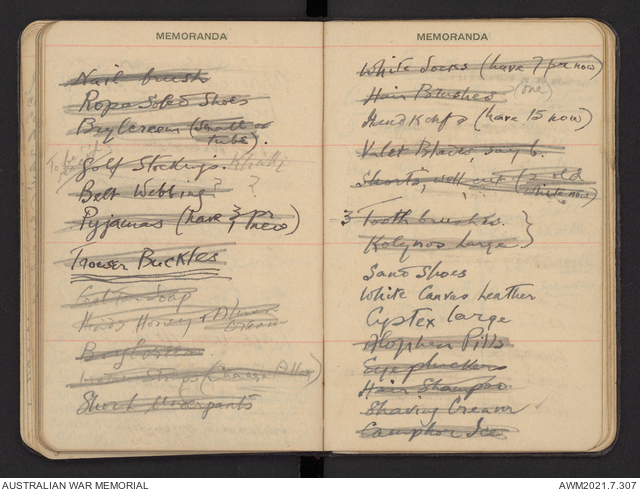 MEMORANDA
Nail brush
Rope Soled Shoes
Brylcreem (small or
tube).
Golf Stockings. Khaki
Belt Webbing? ?
Pyjamas (have 3 pr
new)
Trouser Buckles
Soap
Hinds Honey & Almond
Cream
Short Underpants
MEMORANDA
White Socks (have 7 pr now)
Hair Brushes (one)
Hand Kchfs (have 15 now)
Valet Blades, say 6.
Shorts, well cut (2 old
white now)
3 Tooth brushes. }
Kolynos large }
Sand Shoes
White Canvas Leather
Cystex large
Alophen Pills
Eye pluckers
Hair Shampoo
Shaving Cream
Camphor Ice
AUSTRALIAN WAR MEMORIAL
AWM2021.7.307